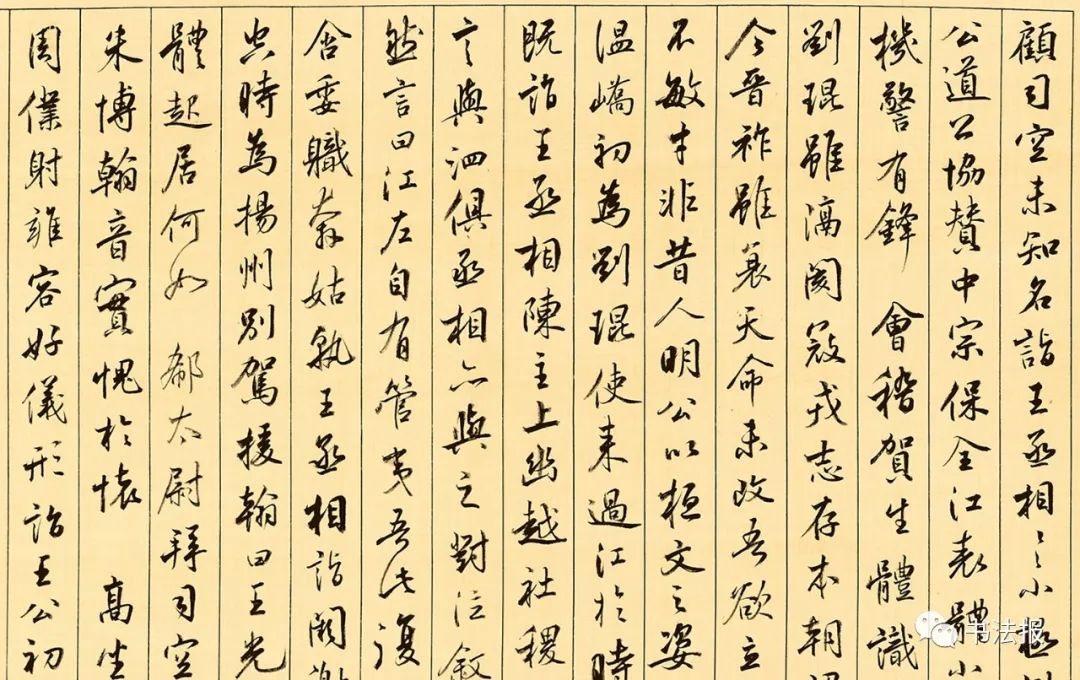 顧司空未知名詣王丞相〻小極
公道公協贊中宗保全江表體小
機警有鋒 會稽賀生體識
劉琨雖隔閡寇戎志存本朝
今晉祚雖衰天命未改吾欲立
不敏才非昔人明公以桓文之姿
溫嶠初為劉琨使来過江於時
既詣王丞相陳主上幽越社稷
言與泗俱丞相亦與之對泣敘
然言曰江左自有管夷吾此復
含委職奔姑孰王丞相詣闕謝
空時為揚州別駕援翰曰王光
體起居何如 郗太尉拜司空
朱博翰音實愧於懷 高坐
周僕射雍容好儀形詣王公初
书法报